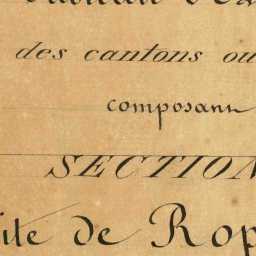 des cantons ou
composant
SECTION
ite de Rop